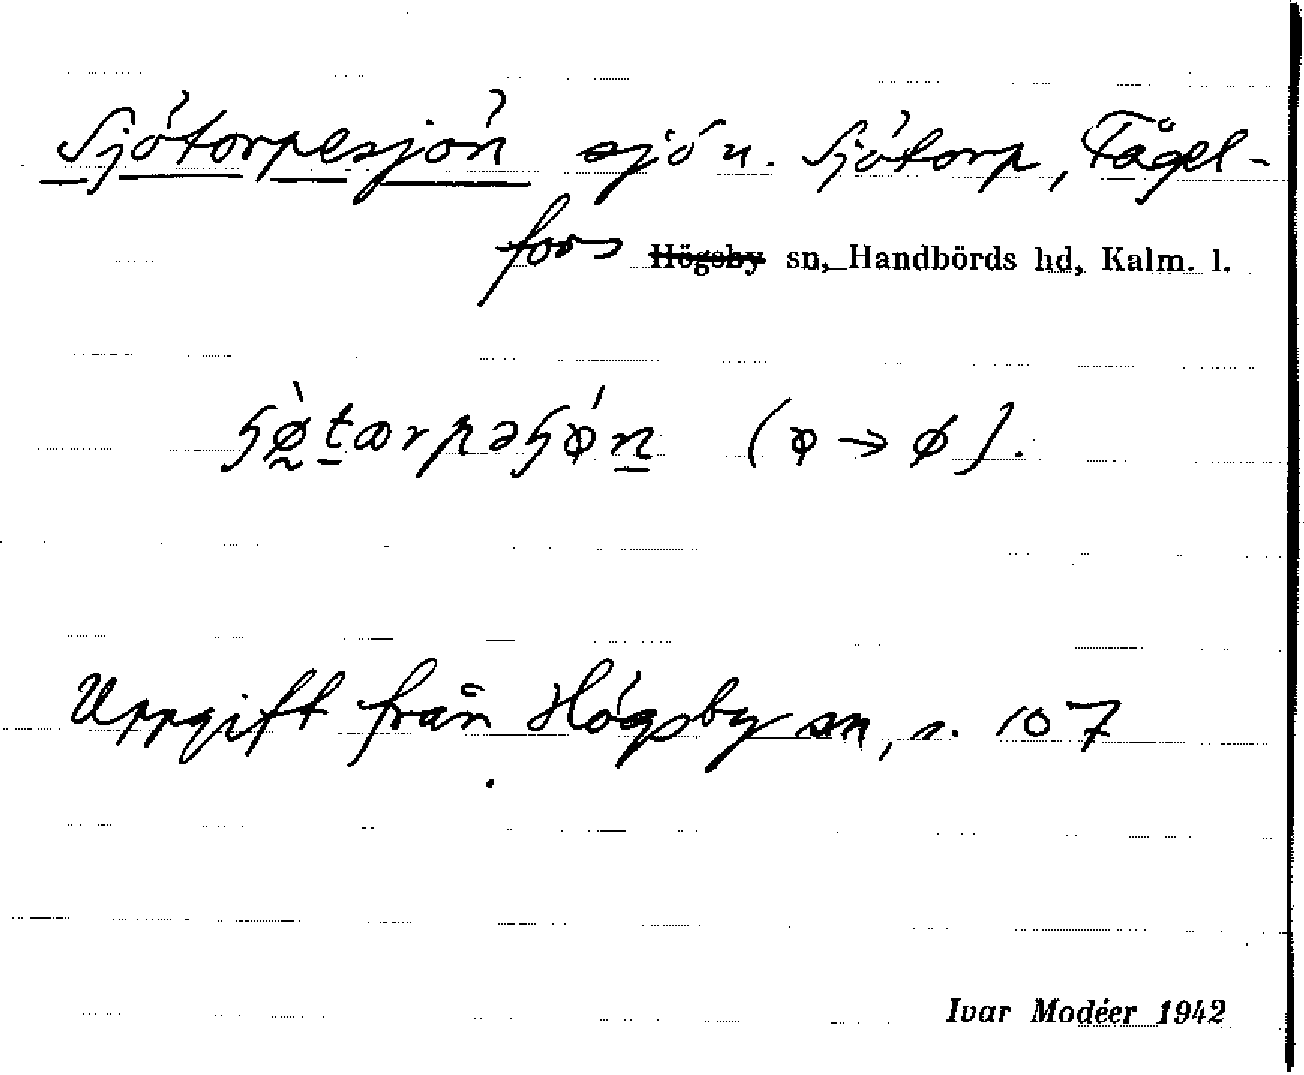 Sjötorpesjön sjö n. Sjötorp, Fågel-
fors Högsby sn, Handbörds hd, Kalm. l.
Uppgift från Högsby sn, s. 107
Ivar Modéer 1942